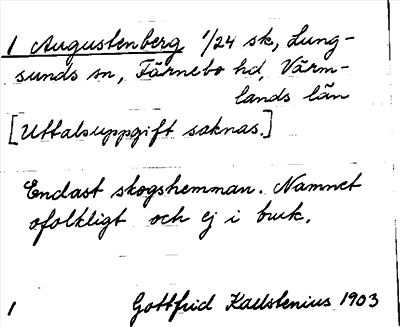 1 Augustenberg 1/24 sk, Lung-
sunds sn, Färnebo hd, Värm-
lands län
[Uttalsuppgift saknas.]
Endast skogshemman. Namnet
ofolkligt och ej i bruk.
1 Gottfrid Kallstenius 1903